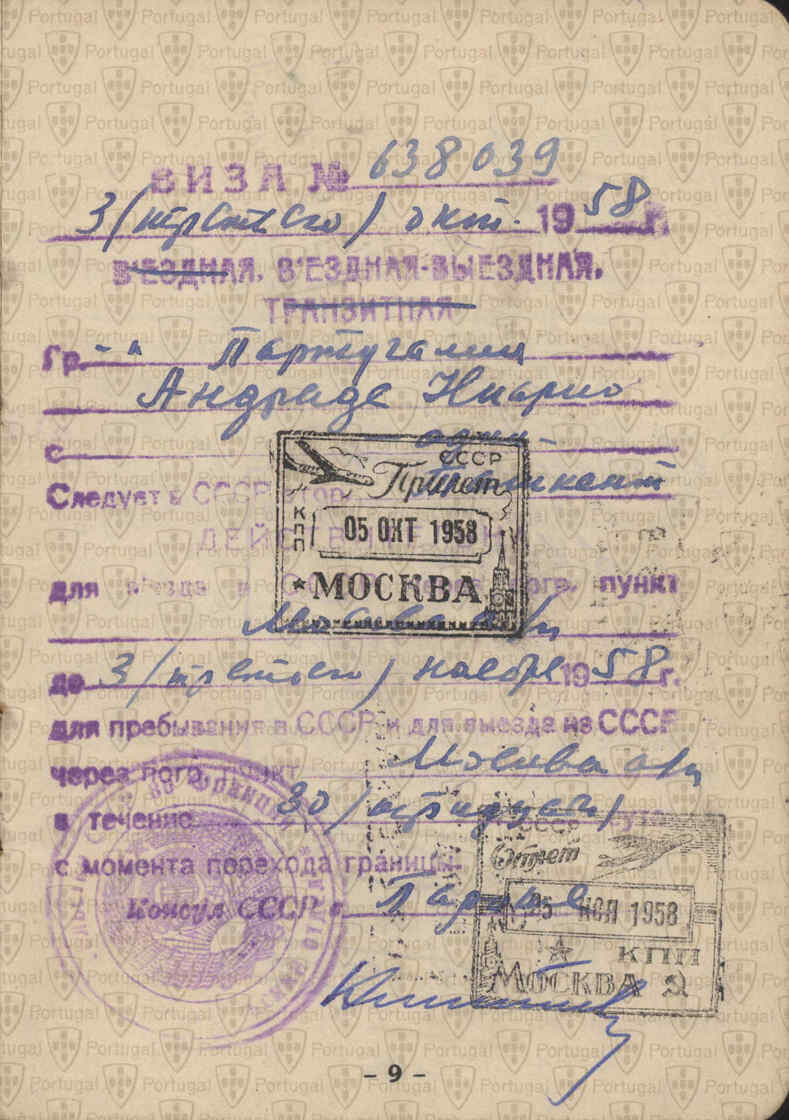 ВИЗА № 638039
3 (третьего) окт. 1958 г.
В'ЕЗДНАЯ, В'ЕЗДНАЯ-ВЫЕЗДНАЯ,
ТРАНЗИТНАЯ
Гр. - " Португалии
Андраде
с один
Следует в СССР
ДЕЙСТВИТЕЛЬНА
для в'езда в СССР через погр. пункт
Москва а/п
до 3 (третьего) ноября 1958 г.
для пребывания в СССР и для выезда из СССР
через погр. пункт Москва а/п
в течение 30 (тридцати) суток
с момента перехода границы.
Консул СССР в Париже
СССР
Прилет
КПП
05 ОКТ 1958
МОСКВА
СССР
Отлет
05 НОЯ 1958
КПП
МОСКВА
во Франции
- 9 -
Portugal